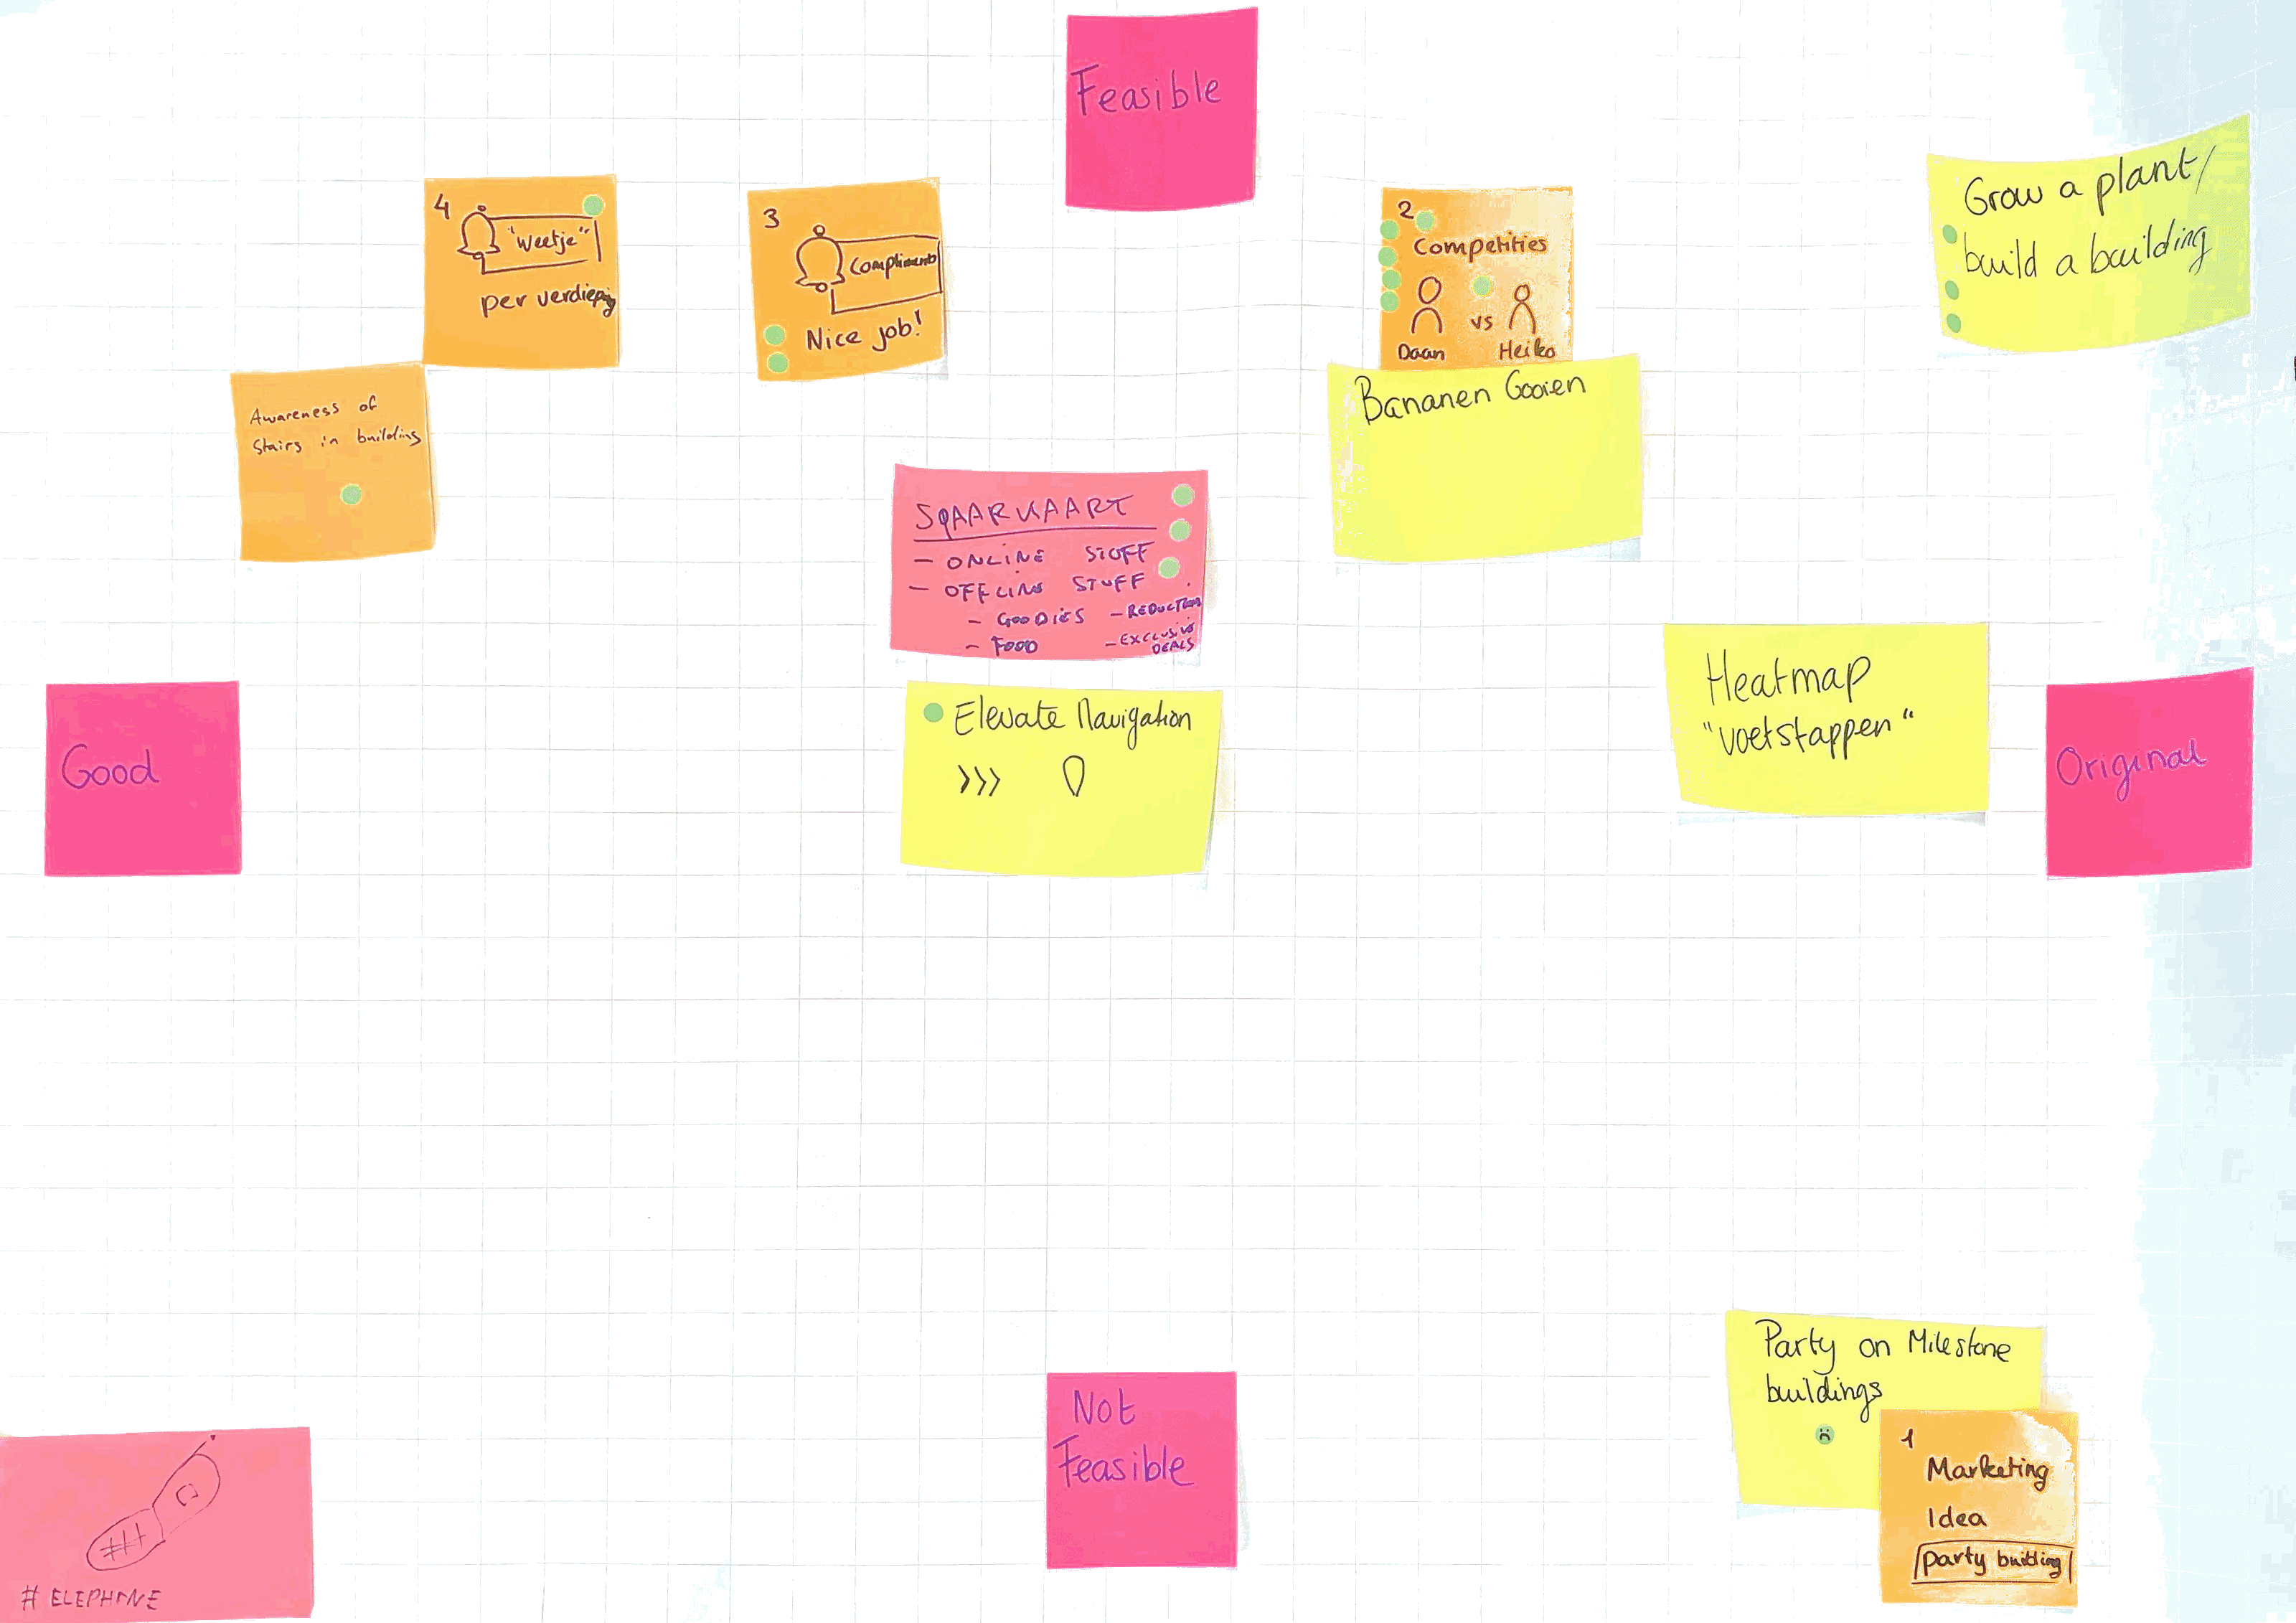 Feasible
4
"Weetje"
per verdieping
3
Compliment
Nice job!
2
Competities
vs
Daan Heiko
Grow a plant/
build a building
Awareness of
Stairs in building
Bananen Gooien
SPAARKAART
- ONLINE STUFF
- OFFLINE STUFF
- GOODIES - REDUCTION
- FOOD - EXCLUSIVE
DEALS
Good
Elevate Navigation
>>>
Heatmap
"voetstappen"
Original
Party on Milestone
buildings
Not
Feasible
1
Marketing
Idea
party building
# ELEPHONE